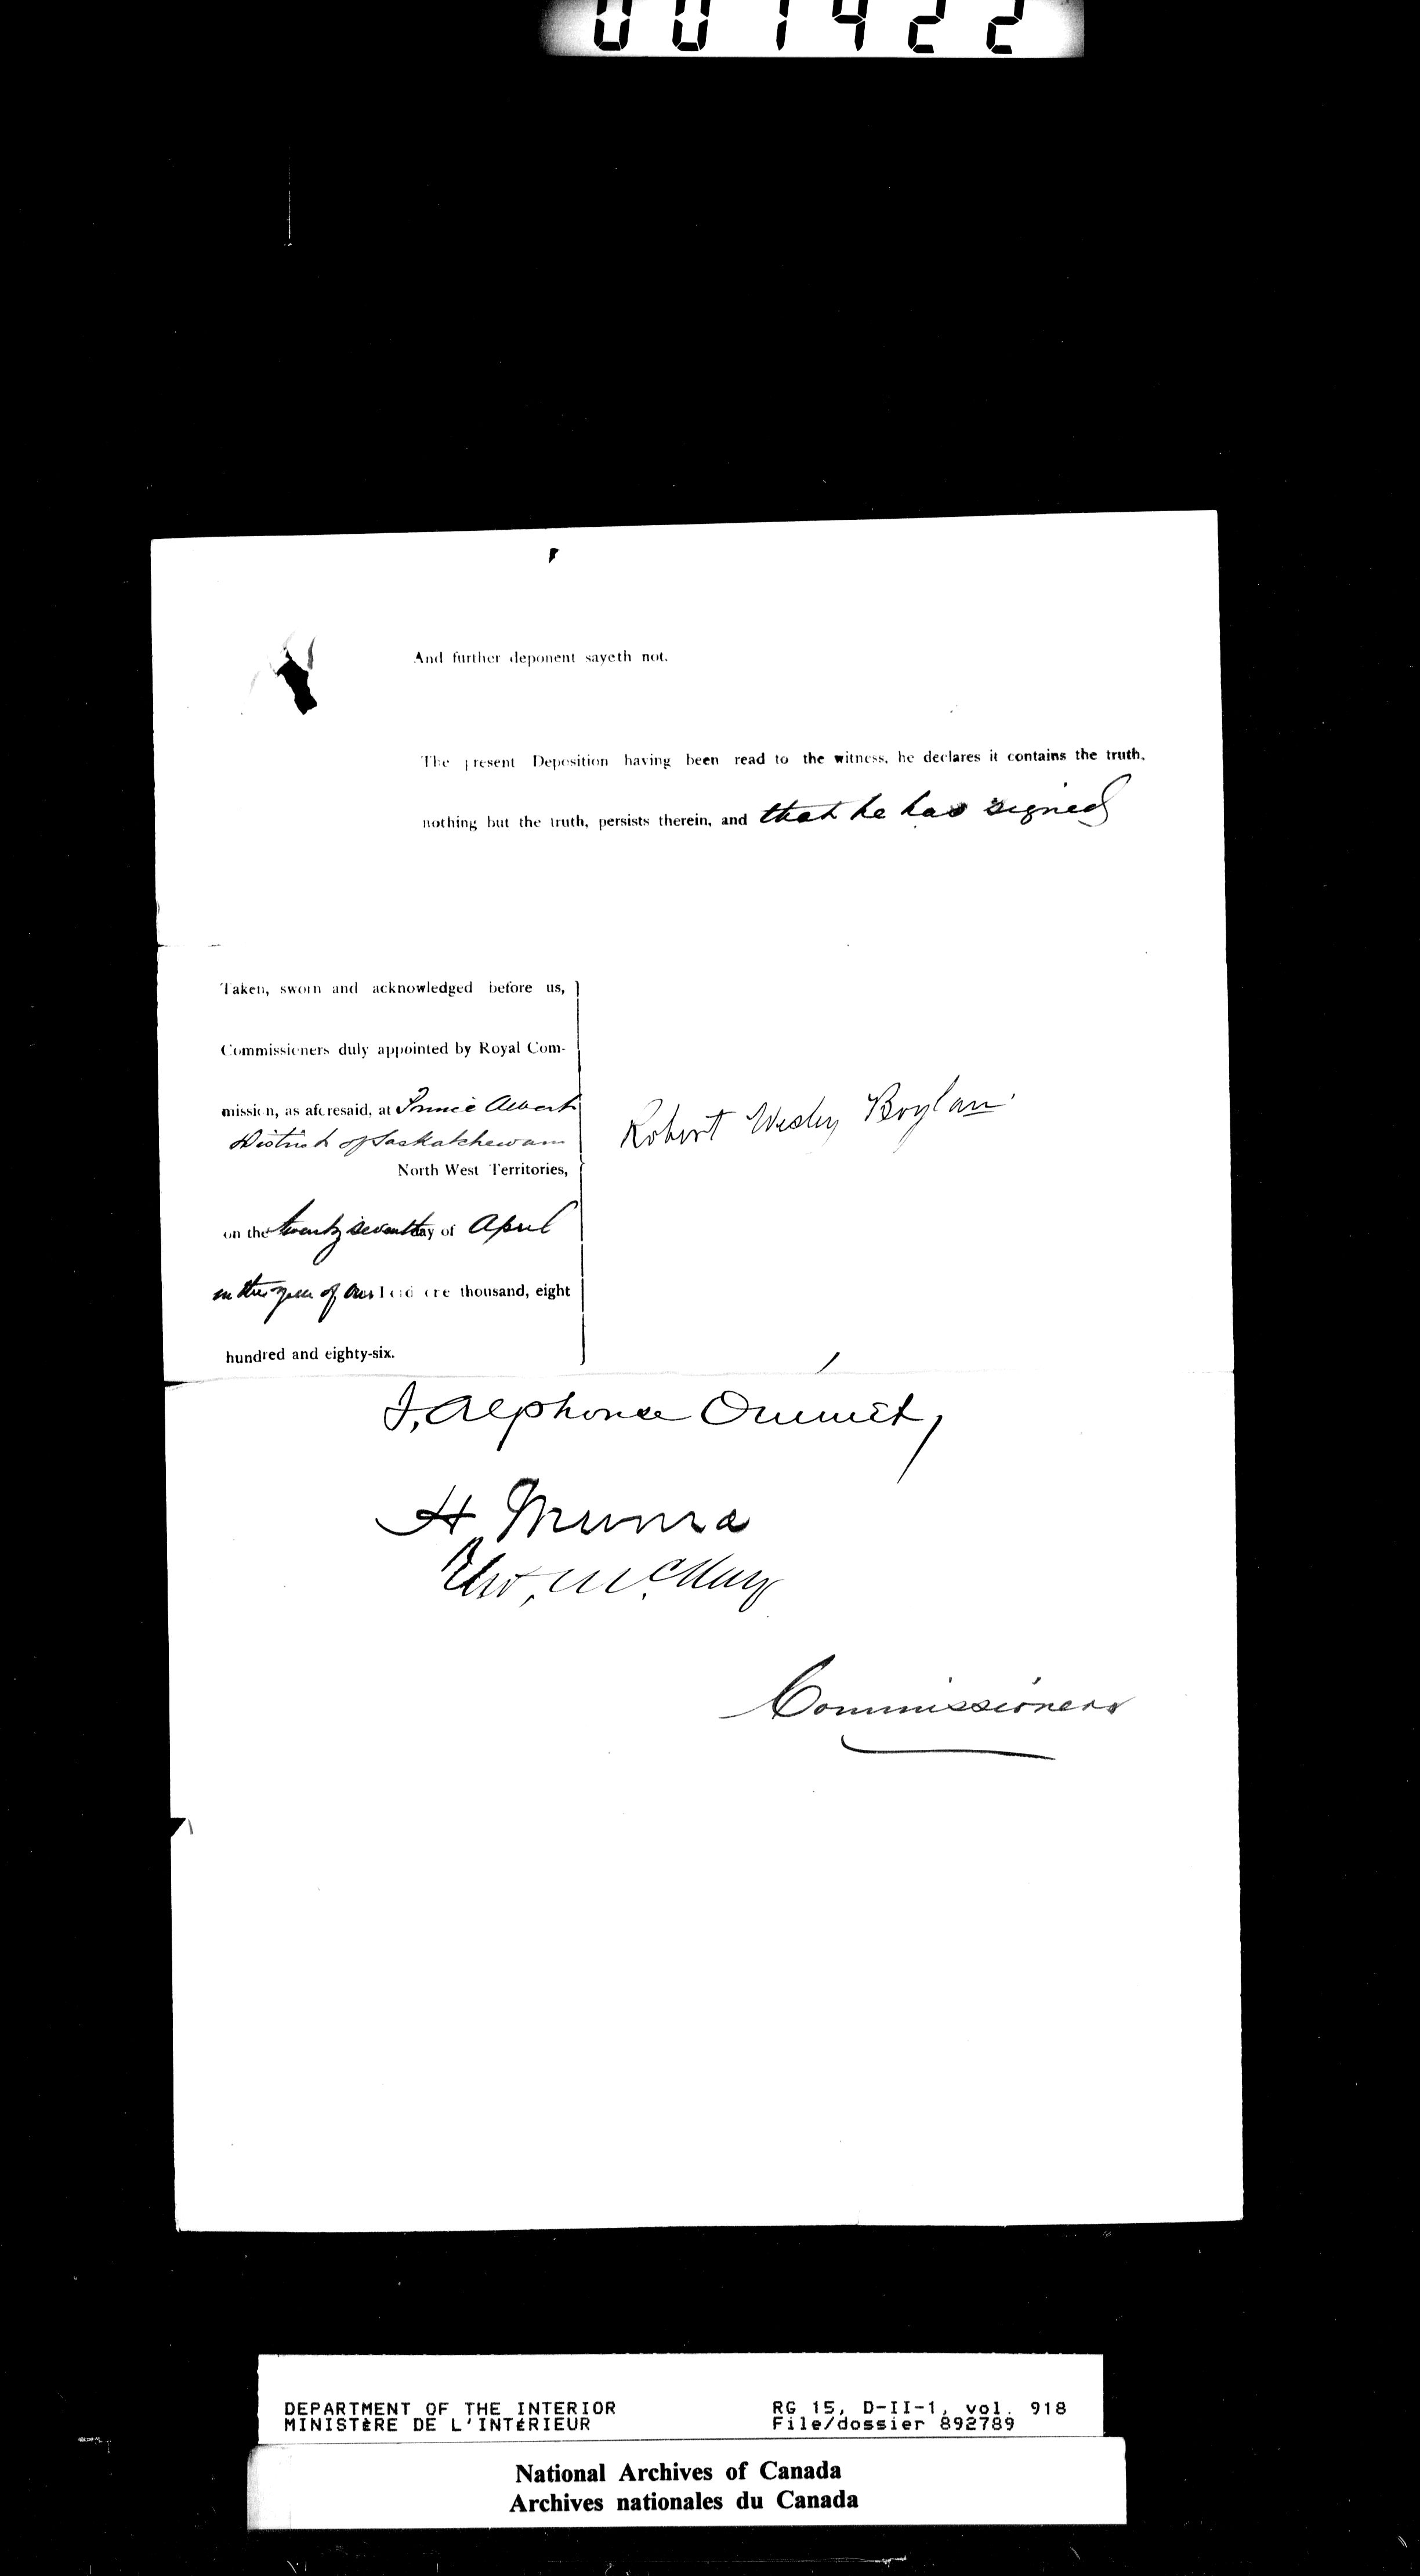 001422
And further deponent sayeth not.
The present Deposition having been read to the witness, he declares it contains the truth,
nothing but the truth, persists therein, and that he has signed
Taken, sworn and acknowledged before us,
Commissioners duly appointed by Royal Com-
mission, as aforesaid, at Prince Albert
District of Saskatchewan
North West Territories,
on the twenty seventh day of April
in the year of our Lord one thousand, eight
hundred and eighty-six.
Robert Wesley Boylan.
J, Alphonse Ouimet,
H Munro
Tho, McKay
Commissioners
DEPARTMENT OF THE INTERIOR
MINISTÈRE DE L'INTÉRIEUR
RG 15, D-II-1, vol. 918
File/dossier 892789
National Archives of Canada
Archives nationales du Canada